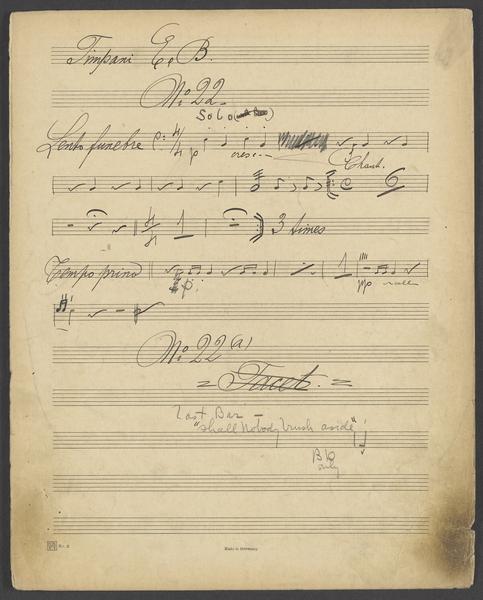 Timpani E & B.
No. 22.
Solo
Lento funebre
p cresc.
Chant.
6
1 3 times
Tempo primo
1
p mp rall
No. 22 (a)
= Tacet. =
Last Bar —
"shall nobody brush aside"
Bb
only
No. 2 Made in Germany